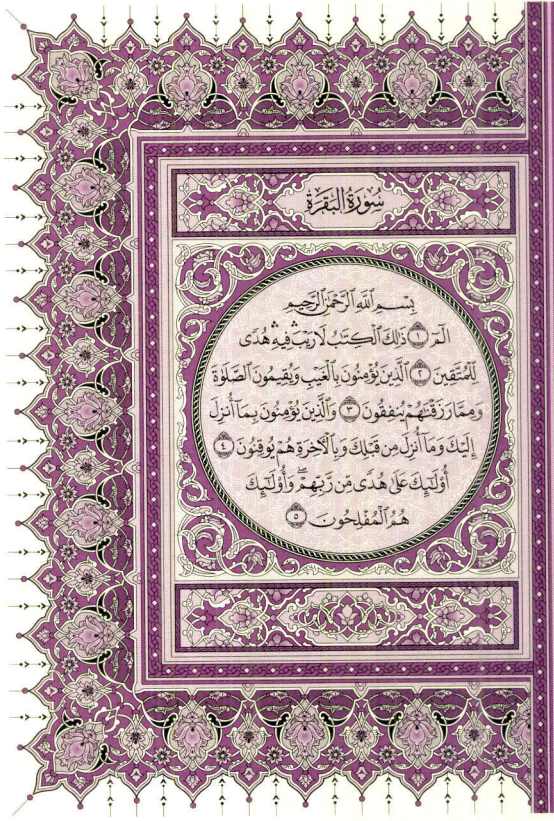 سُورَةُ الْبَقَرَةِ
بِسْمِ ٱللَّهِ ٱلرَّحْمَٰنِ ٱلرَّحِيمِ
الٓمٓ ١ ذَٰلِكَ ٱلْكِتَٰبُ لَا رَيْبَ ۛ فِيهِ ۛ هُدًى
لِّلْمُتَّقِينَ ٢ ٱلَّذِينَ يُؤْمِنُونَ بِٱلْغَيْبِ وَيُقِيمُونَ ٱلصَّلَوٰةَ
وَمِمَّا رَزَقْنَٰهُمْ يُنفِقُونَ ٣ وَٱلَّذِينَ يُؤْمِنُونَ بِمَآ أُنزِلَ
إِلَيْكَ وَمَآ أُنزِلَ مِن قَبْلِكَ وَبِٱلْـَٔاخِرَةِ هُمْ يُوقِنُونَ ٤
أُو۟لَٰٓئِكَ عَلَىٰ هُدًى مِّن رَّبِّهِمْ ۖ وَأُو۟لَٰٓئِكَ
هُمُ ٱلْمُفْلِحُونَ ٥